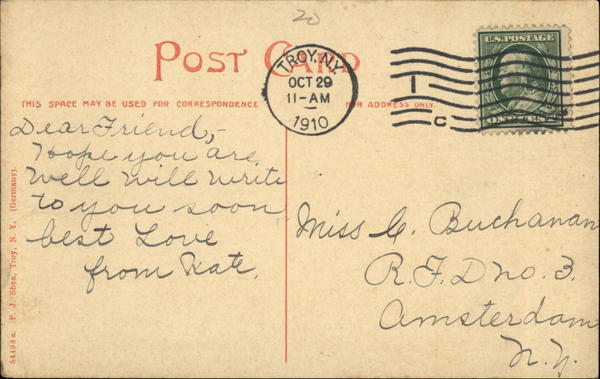 20
POST CARD
TROY, N.Y.
OCT 29
11-AM
1910
1
C
U.S. POSTAGE
ONE CENT
THIS SPACE MAY BE USED FOR CORRESPONDENCE
FOR ADDRESS ONLY.
Dear Friend,-
Hope you are
well will write
to you soon
best Love
from Kate.
Miss C. Buchanan
R.F.D no. 3.
Amsterdam
N.Y.
54494a. P. J. Shea, Troy, N. Y. (Germany).